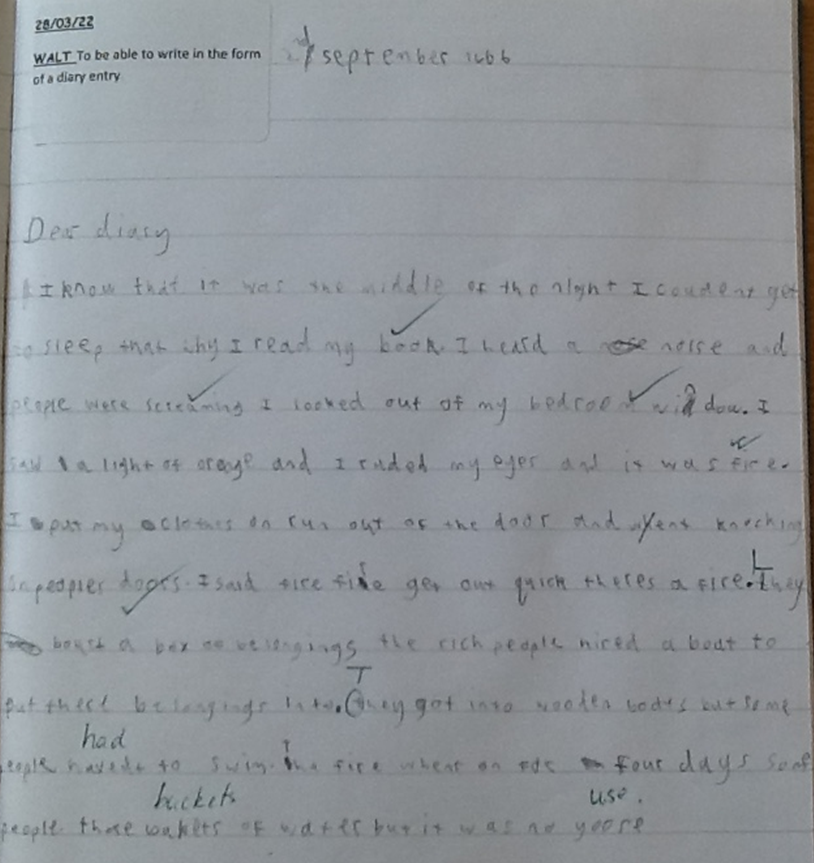 28/03/22
WALT To be able to write in the form
of a diary entry
september 1666
Dear diary
I know that it was the middle of the night I coudent get
to sleep that why I read my book. I heard a noise and
people were screaming I looked out of my bedroom window. I
saw a light of orage and I rubed my eyes and it was fire.
I put my clothes on run out of the door and went knocking
on peoples doors. I said fire fire get out quick theres a fire. They
a box belongings the rich people hired a boat to
put there belongings into. They got into wooden but some
had
people to swim. The fire on for four days some
buckets use.
people of water but it was no yoore